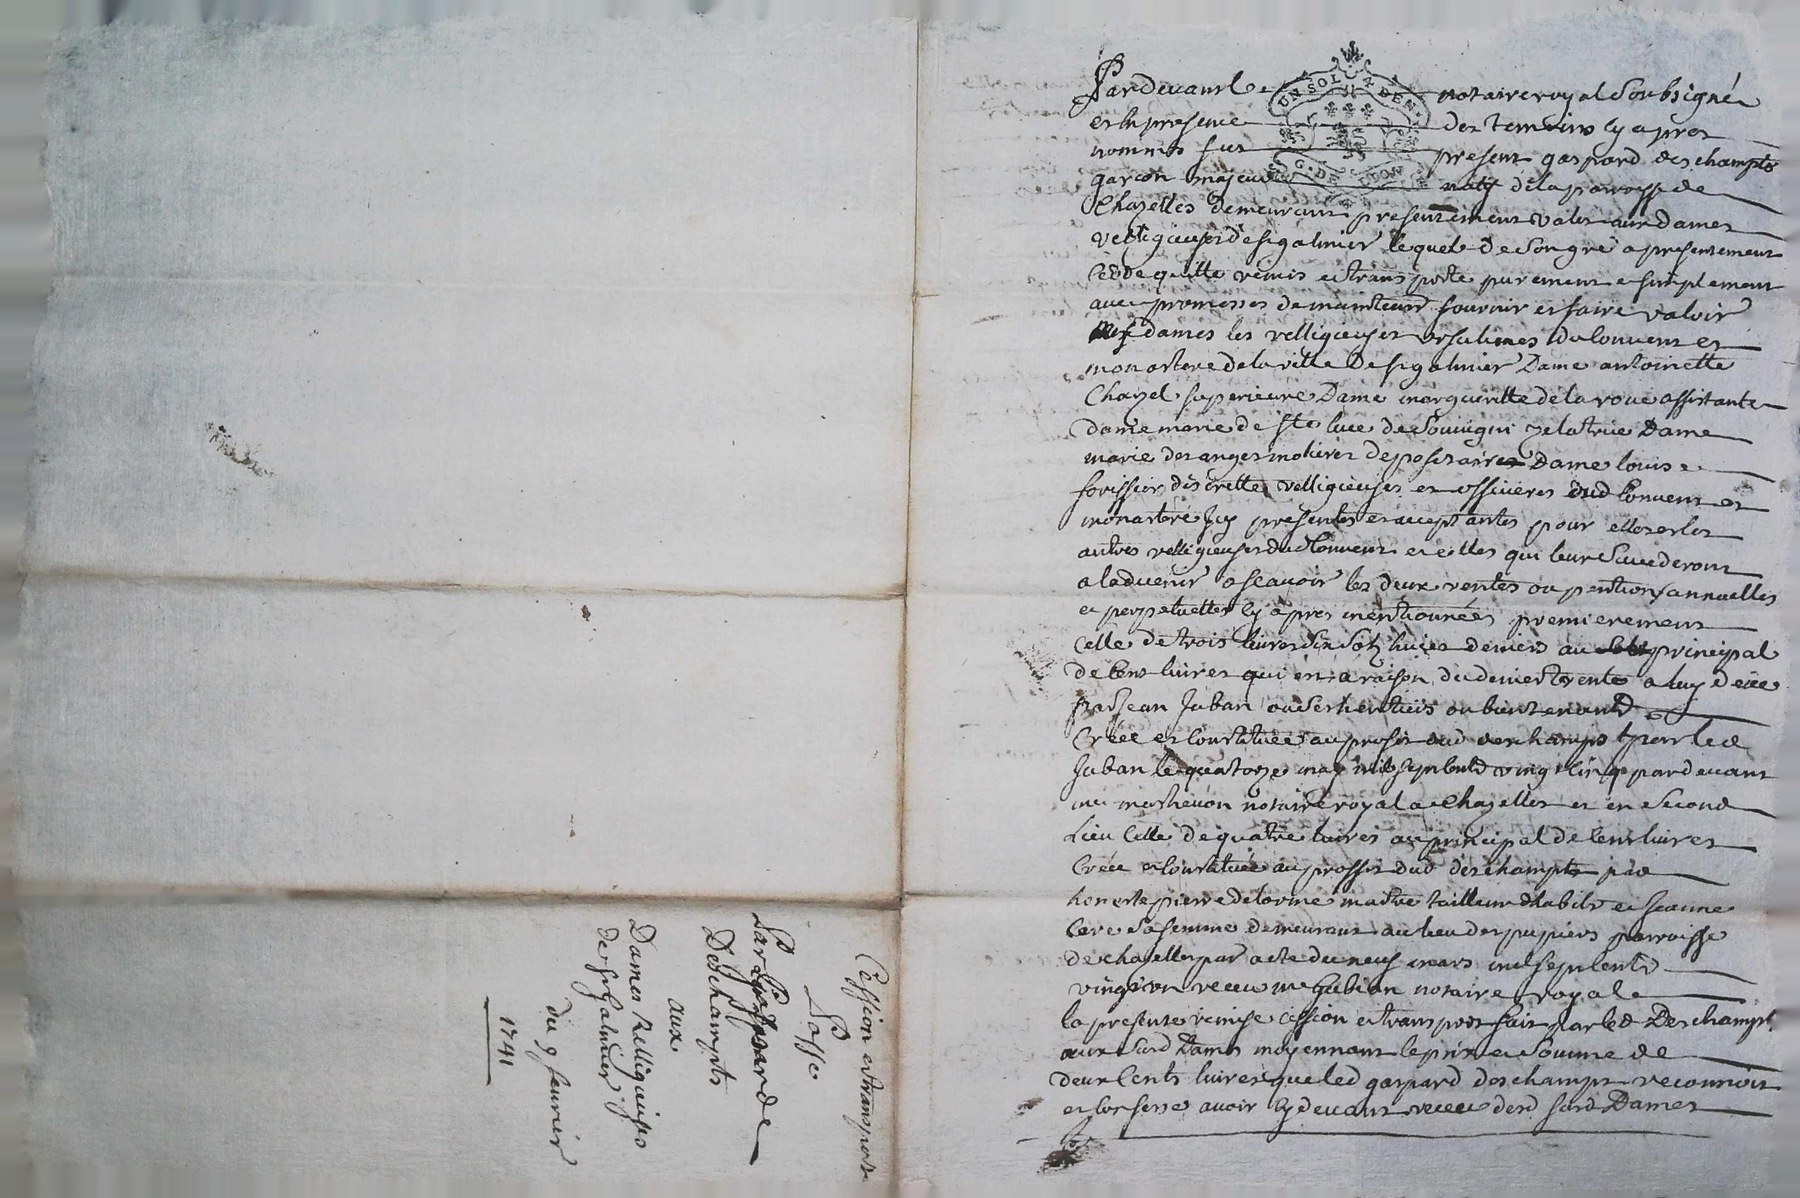 UN SOL 4 DEN.
G. DE LYON
Pardevant le notaire royal Soubsigné
et en presence des temoins cy apres
nommés fut present gaspard deschamps
garcon majeur natif de la parroisse de
Chazelles demeurant presentement valet aux dames
relligieuses de st galmier lequel de Son gré a presentement
Cédé quitte remis et transporte purement et simplement
avec promesses de maintenir fournir et faire valoir
aux dames les relligieuses ursulines du Couvent et
monastere de la ville De st galmier Dame antoinette
Chazel superieure Dame margueritte de la roue assistante
dame marie de ste luce de Souvigni zelatrice Dame
marie des anges molieres depositaire Dame louise
forissier discrette relligieuses et officieres dud Convent et
monastere Icy presentes et acceptantes pour elles et les
autres relligieuses dud Couvent et celles qui leur Succederont
a ladvenir a scavoir les deux rentes ou pentions annuelles
et perpetuelles cy apres mentionnées premierement
Celle de trois livres Six Solz huict deniers au principal
de Cent livres qui est a raison du denier trente a luy deüe
par Jean Juban ou Ses heritiers ou bientenants
Créée et Constituée au profit dud deschamps par led
Juban le quatorze may mil sept cents vingt cinq pardevant
me mathevon notaire royal a Chazelles et en Second
Lieu Celle de quatre livres au principal de Cent livres
Créée et Constituée au proffit dud deschamps par
honeste pierre delorme maitre tailleur dhabits et Jeanne
Cere Sa femme demeurant au lieu des pupiers parroisse
de chazelles par acte du neuf mars mil sept cents
vingt un receu me Gubian notaire royal
la presente remise cession et transport fait par led Deschamps
aux Susd Dames moyennant le prix et Somme de
deux Cents livres que led gaspard deschamps reconnoit
et Confesse avoir cy devant receu desd susd Dames
Cession et transport
Passé
Par Gaspard
Deschamps
aux
Dames Relligieuses
de st Galmier
du 9 fevrier
1741